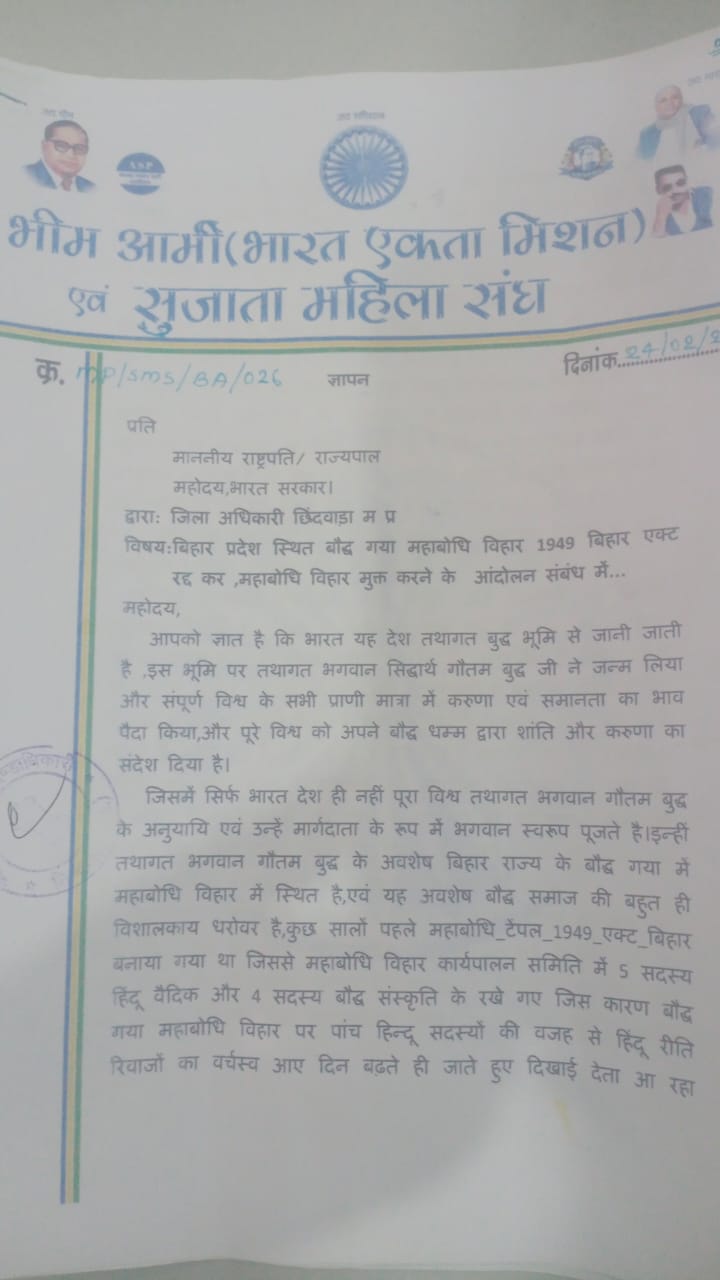 जय भीम
जय संविधान
ASP
भीम आर्मी(भारत एकता मिशन)
एवं सुजाता महिला संघ
क्र. MP/SMS/BA/026
ज्ञापन
दिनांक......24/02/2
प्रति
माननीय राष्ट्रपति/ राज्यपाल
महोदय,भारत सरकार।
द्वाराः जिला अधिकारी छिंदवाडा म प्र
विषय:बिहार प्रदेश स्थित बौद्ध गया महाबोधि विहार 1949 बिहार एक्ट
रद्द कर ,महाबोधि विहार मुक्त करने के आंदोलन संबंध में...
महोदय,
आपको ज्ञात है कि भारत यह देश तथागत बुद्ध भूमि से जानी जाती
है ,इस भूमि पर तथागत भगवान सिद्धार्थ गौतम बुद्ध जी ने जन्म लिया
और संपूर्ण विश्व के सभी प्राणी मात्रा में करुणा एवं समानता का भाव
पैदा किया,और पूरे विश्व को अपने बौद्ध धम्म द्वारा शांति और करुणा का
संदेश दिया है।
जिसमें सिर्फ भारत देश ही नहीं पूरा विश्व तथागत भगवान गौतम बुद्ध
के अनुयायि एवं उन्हें मार्गदाता के रूप में भगवान स्वरूप पूजते है।इन्हीं
तथागत भगवान गौतम बुद्ध के अवशेष बिहार राज्य के बौद्ध गया में
महाबोधि विहार में स्थित है,एवं यह अवशेष बौद्ध समाज की बहुत ही
विशालकाय धरोवर है,कुछ सालों पहले महाबोधि_टेंपल_1949_एक्ट_बिहार
बनाया गया था जिससे महाबोधि विहार कार्यपालन समिति में 5 सदस्य
हिंदू वैदिक और 4 सदस्य बौद्ध संस्कृति के रखे गए जिस कारण बौद्ध
गया महाबोधि विहार पर पांच हिन्दू सदस्यों की वजह से हिंदू रीति
रिवाजों का वर्चस्व आए दिन बढ़ते ही जाते हुए दिखाई देता आ रहा